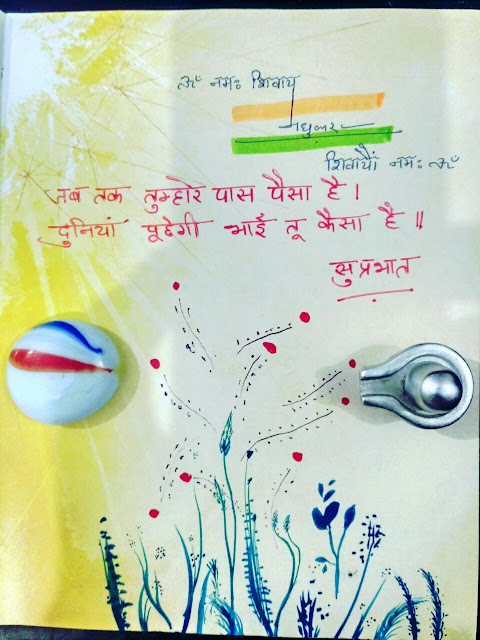 ॐ नमः शिवाय
मधुकर
शिवायाँ नमः ॐ
जब तक तुम्हारे पास पैसा है।
दुनियां पूछेगी भाई तू कैसा है॥
सुप्रभात